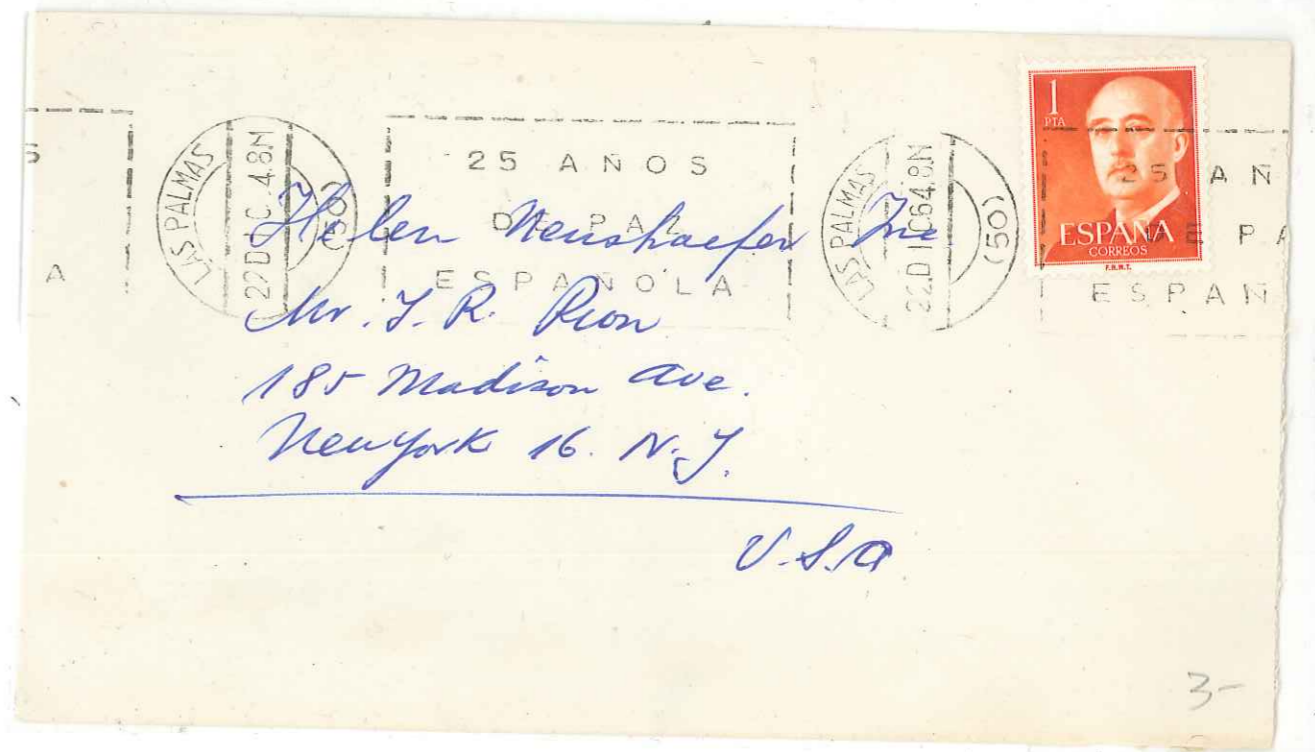 S
A
LAS PALMAS
22 DIC 64.8N
(50)
25 AÑOS
DE PAZ
ESPAÑOLA
LAS PALMAS
22 DIC 64.8N
(50)
25 AÑ
DE PA
ESPAÑ
1
PTA
ESPAÑA
CORREOS
F.N.M.T.
Helen Neushaefer Inc
Mr. J. R. Rion
185 Madison Ave.
New York 16. N.Y.
U.S.A
3-